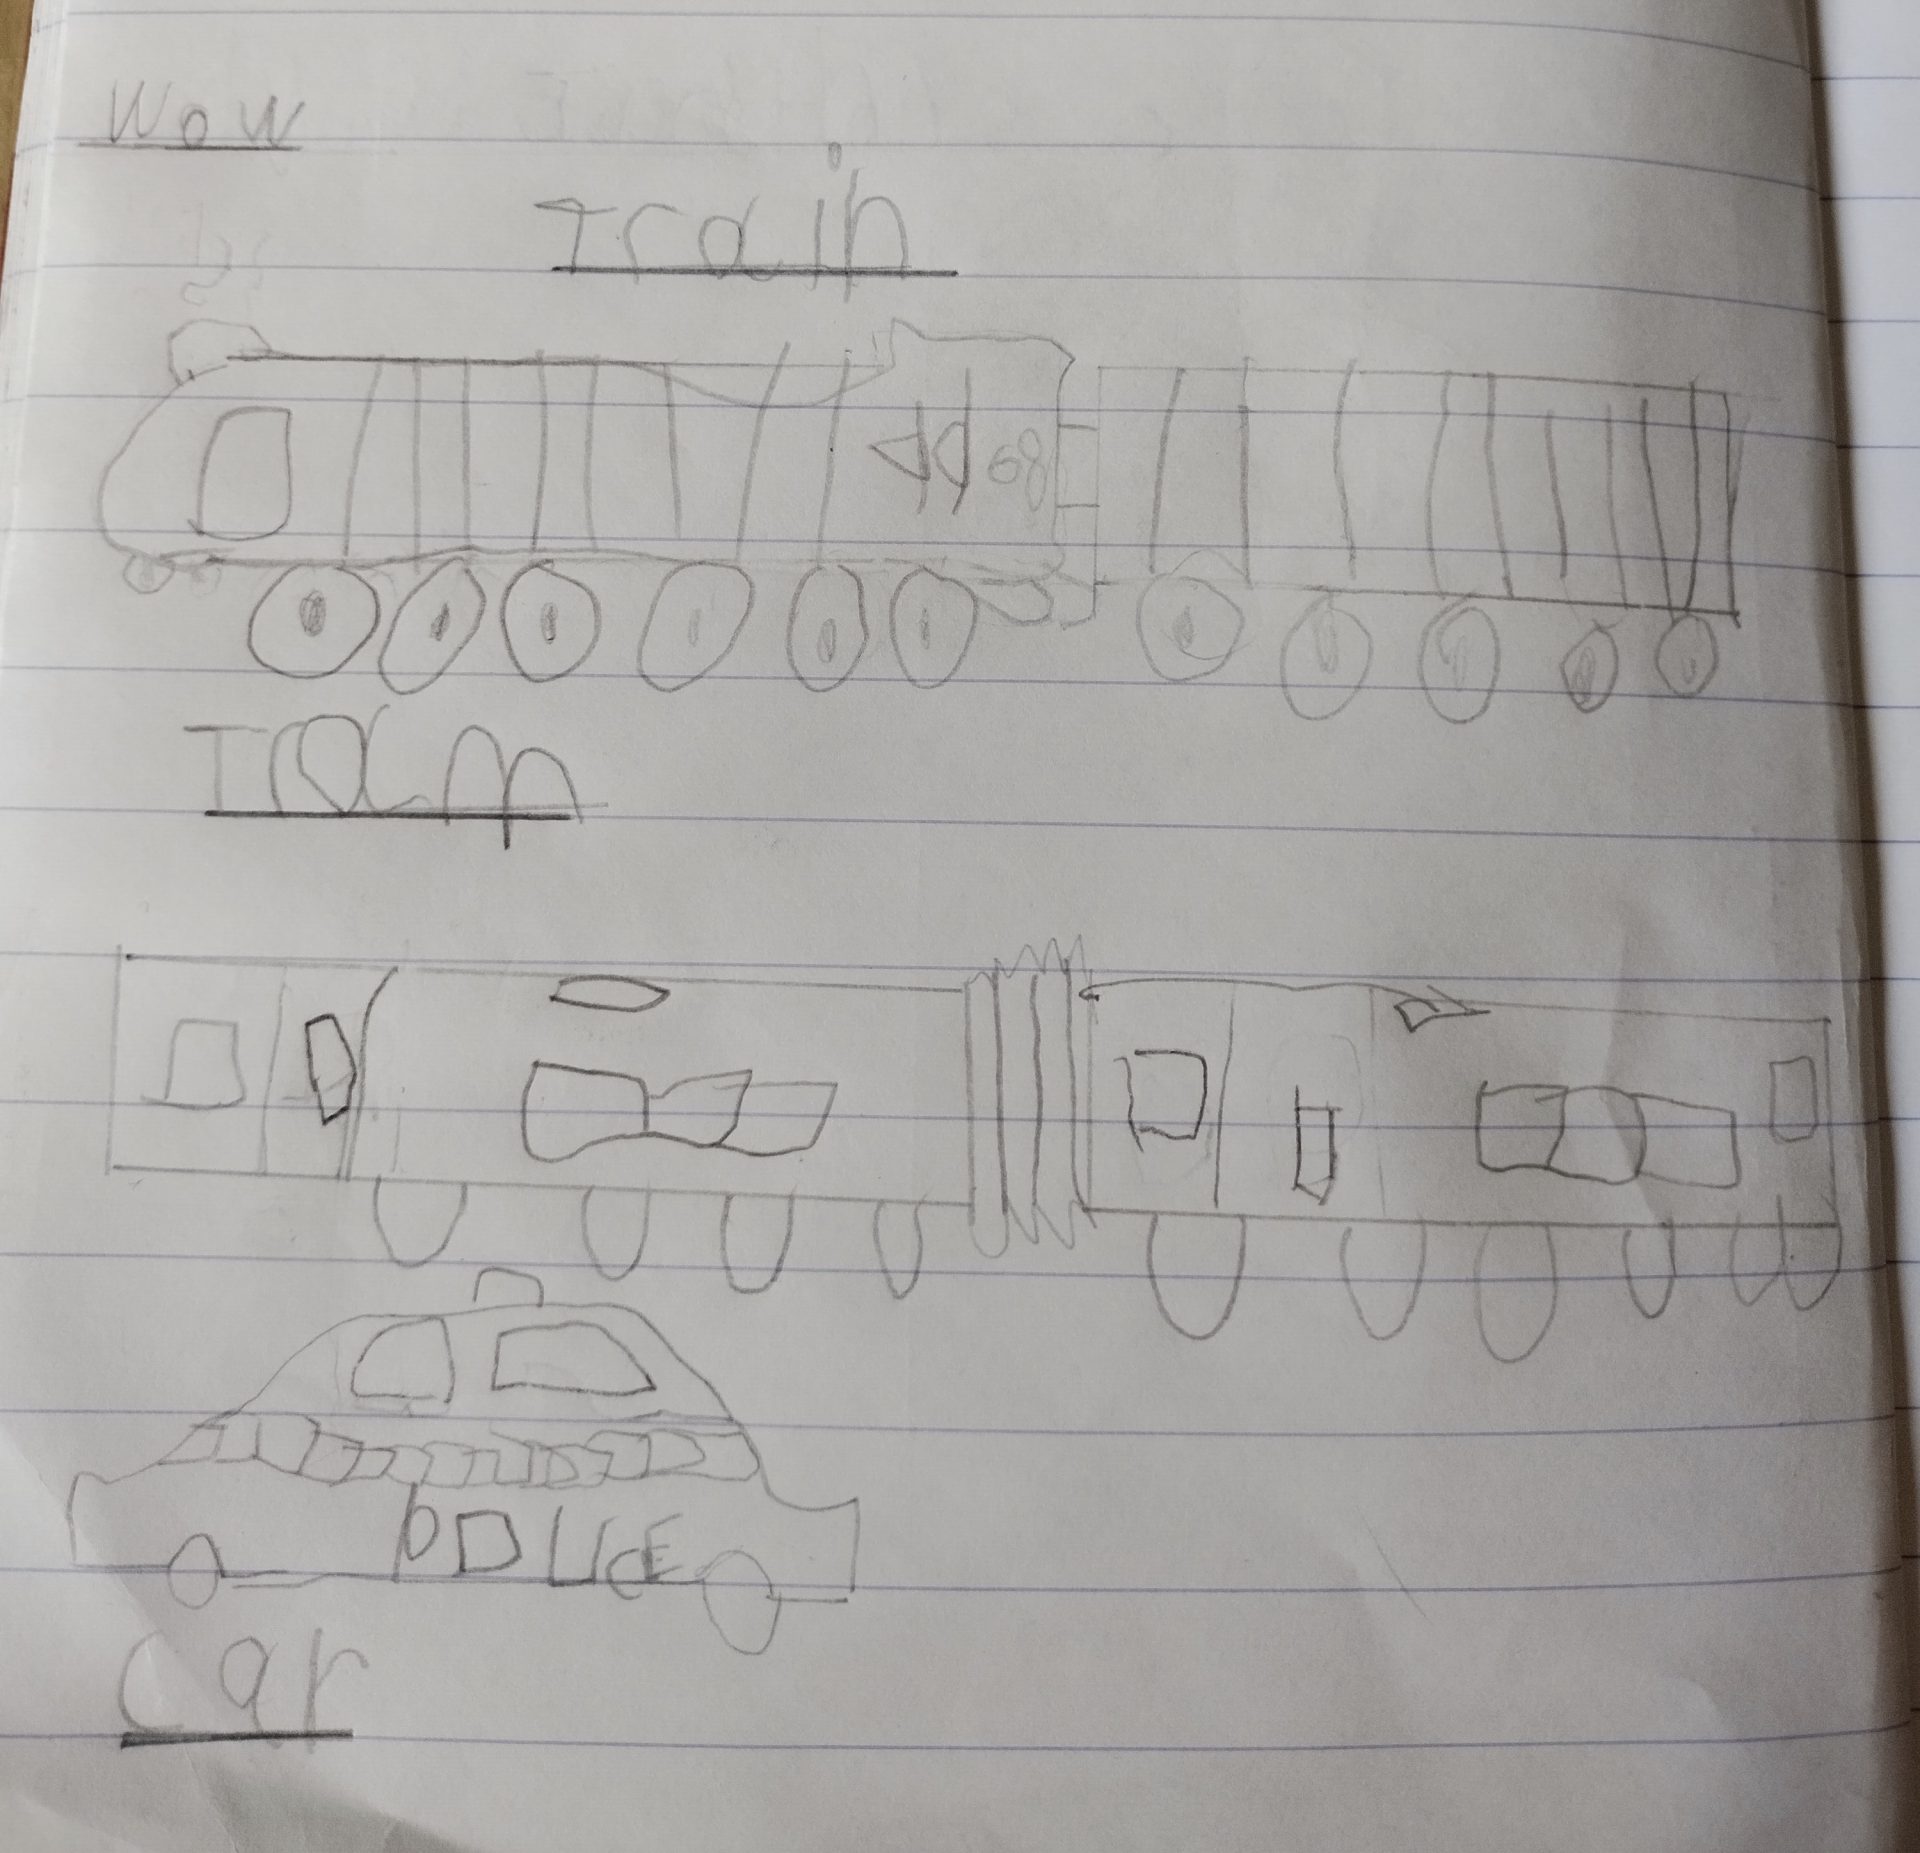 WoW
Train
68
Tram
POLICE
car